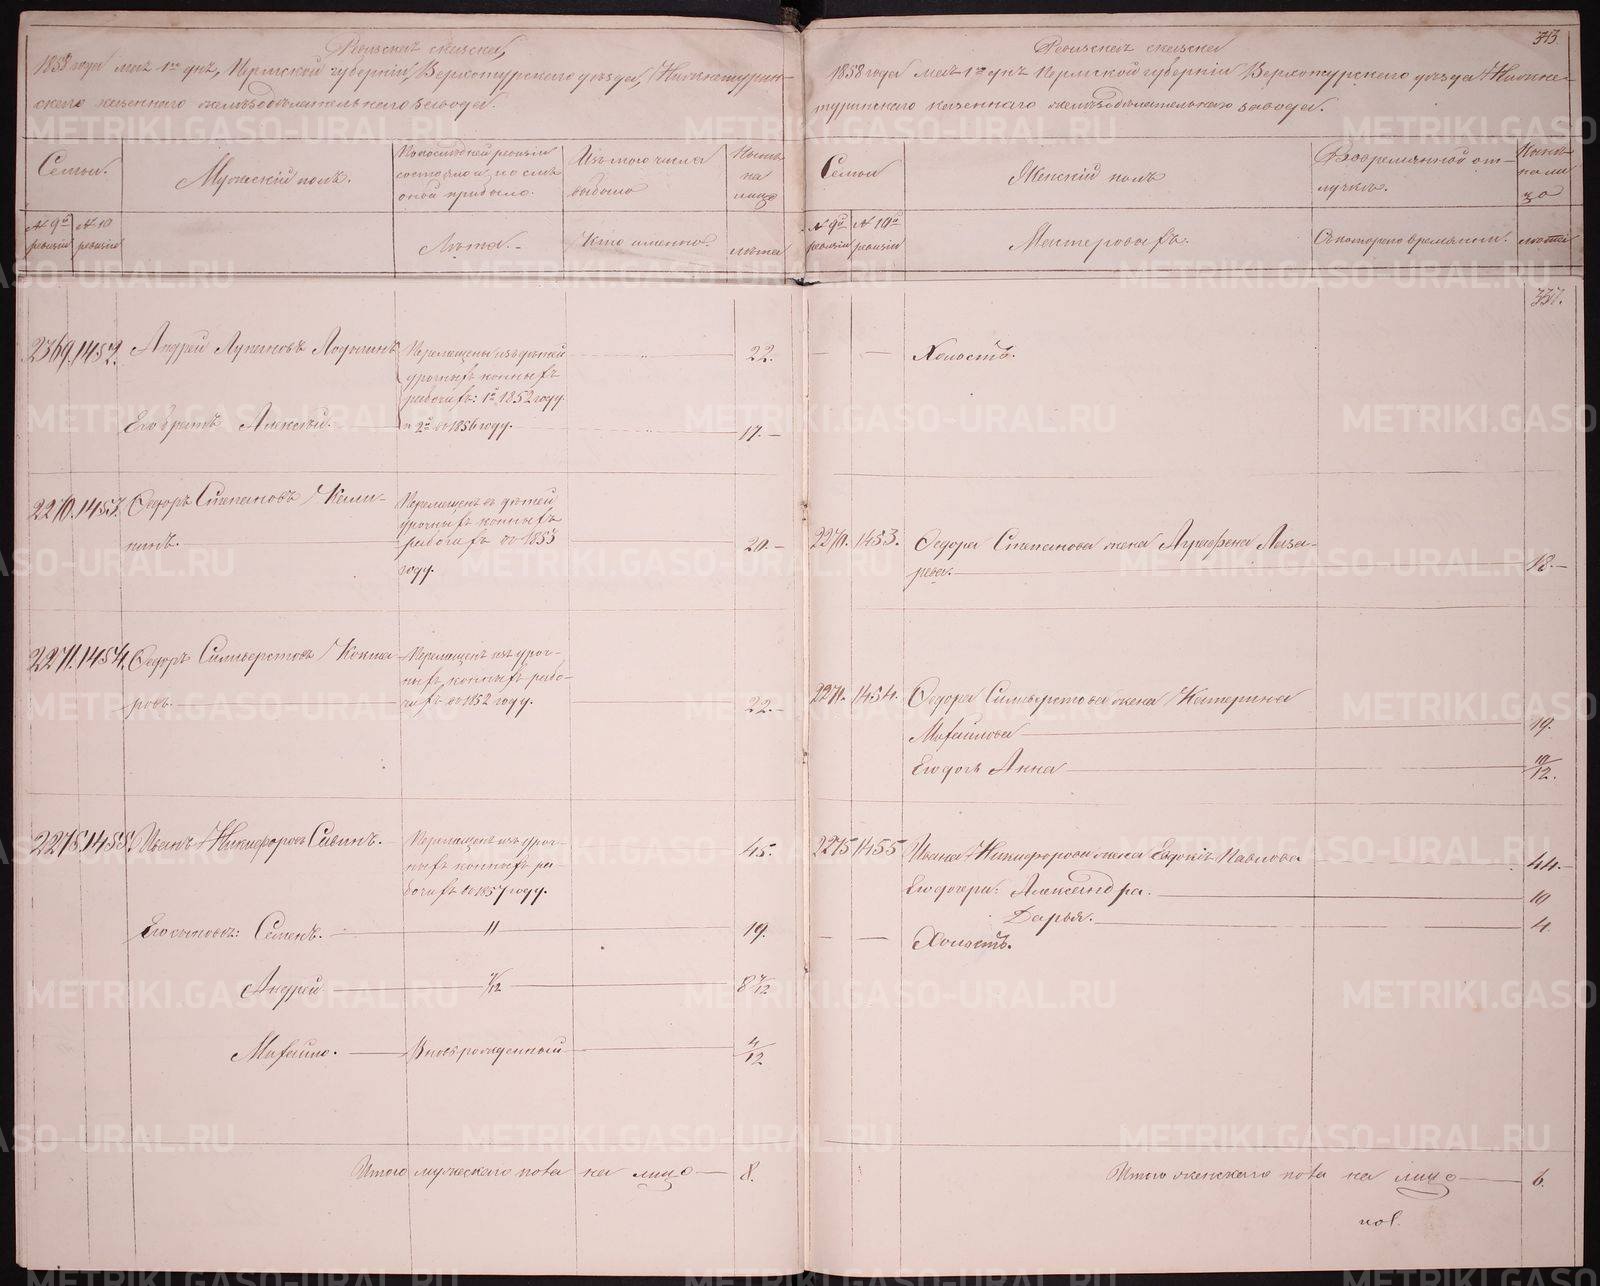 Ревизская сказка,
1858 года мая 1го дня, Пермской губернии Верхотурского уезда, Нижнетурин-
скаго казеннаго железоделательнаго завода.
Семьи.
Мужеский полъ.
По последней ревизии
состояло и после
оной прибыло.
Изъ того числа
выбыло
Ныне
на
лицо
№ 9й
ревизии
№ 10
ревизии
Лѣта.
Кто именно.
лѣта
1452.
Андрей
Перемещены изъ детей
22.
урочныхъ конныхъ
рабочихъ: 1й 1852 году
Его братъ Алексей.
и 2й въ 1856 году.
17.
2270. 1453.
Федоръ Степановъ
Перемещенъ изъ детей
урочныхъ конныхъ
рабочихъ въ 1853
20.
году.
2271. 1454.
Федоръ Сильверстовъ
Перемещенъ изъ уроч-
ныхъ конныхъ рабо-
ровъ.
чихъ въ 1852 году.
22.
2275. 1455.
Иванъ Никифоровъ Савинъ.
Перемещенъ изъ уроч-
45.
ныхъ конныхъ ра-
бочихъ въ 1857 году.
Его сыновья: Семенъ.
11
19.
Андрей
7/12
8 7/12
Михайло.
Вновьрожденный
4/12
Итого мужескаго пола на лицо
8.
313.
Ревизская сказка
1858 года мая 1го дня Пермской губернии Верхотурского уезда Нижне-
туринскаго казеннаго железоделательнаго завода.
Семьи
Женский полъ
Во временной от-
лучке.
Ныне
на ли
цо
№ 9й
ревизии
№ 10й
ревизии
Съ котораго времяни.
лѣта
337.
Холостъ.
2270. 1453.
Федора Степанова жена Аграфена Лаза-
рева.
18.
2271. 1454.
Федора Сильверстова жена Катерина
Михайлова
19.
Его дочь Анна
10/12.
2275 1455
Ивана Никифорова жена Евдокия Павлова
44.
Его дочери: Александра.
10
Дарья.
4.
Холостъ.
Итого женскаго пола на лицо
6.
METRIKI.GASO-URAL.RU